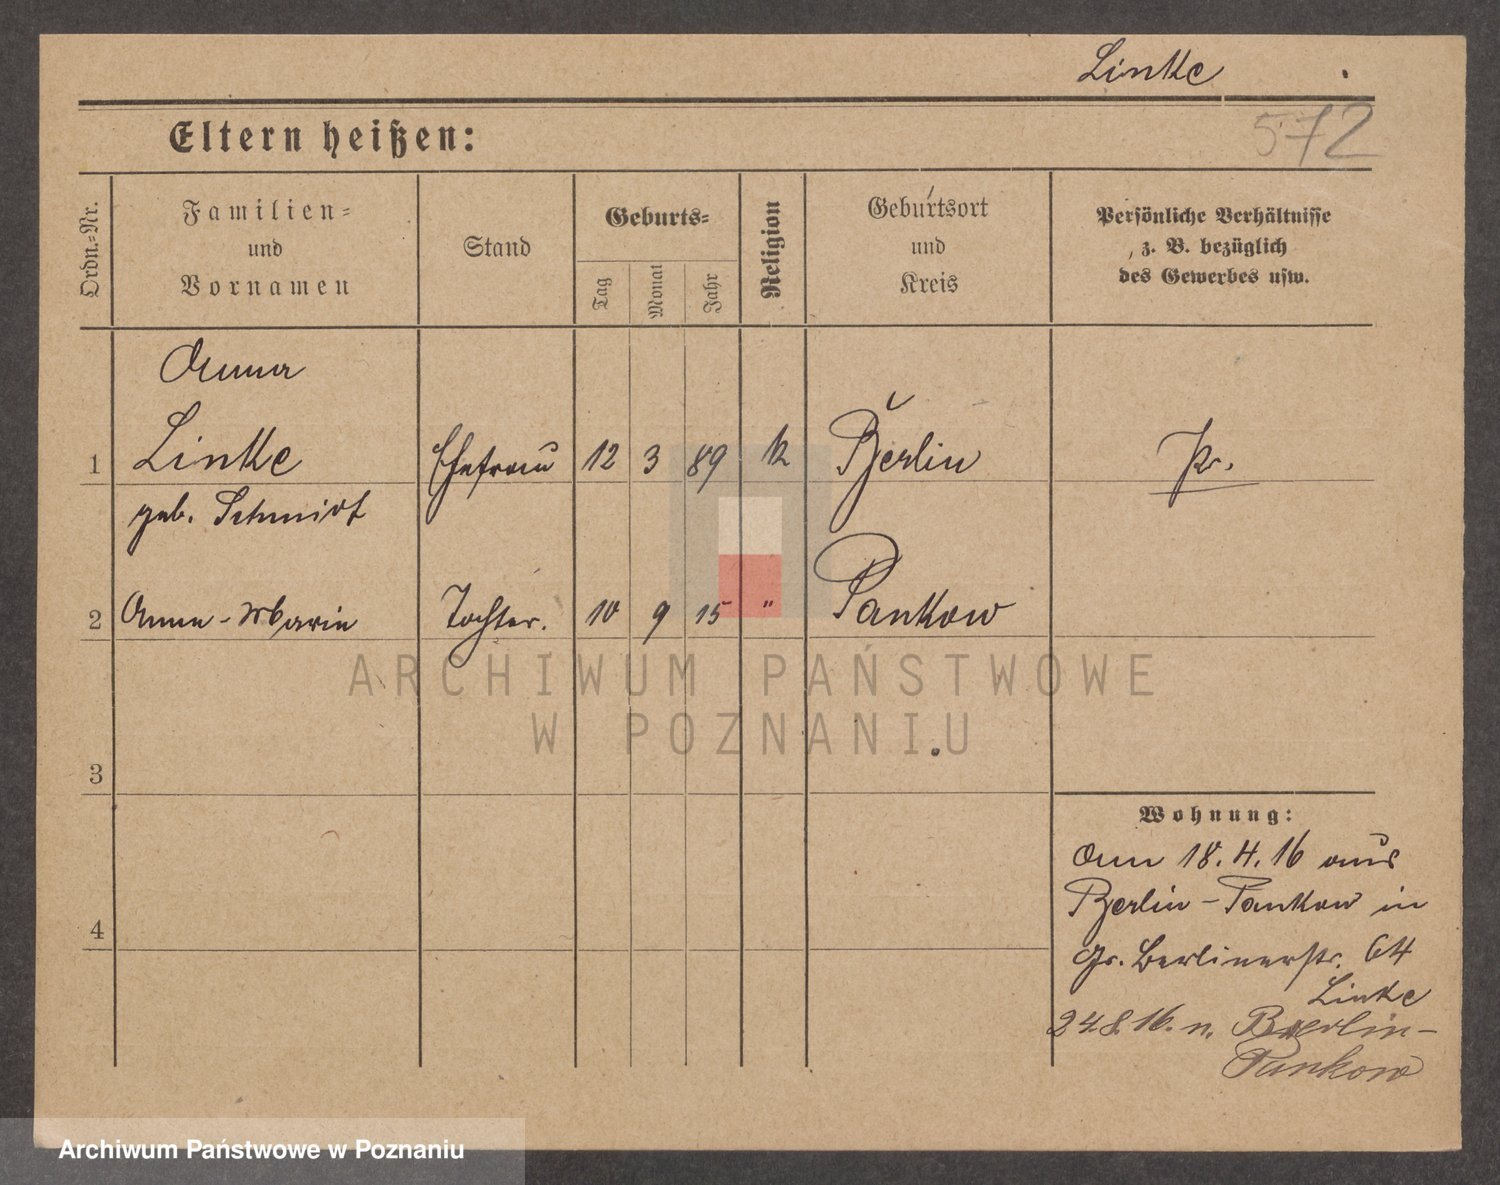 Linke
572
Eltern heißen:
Ordn.-Nr.
Familien-
und
Vornamen
Stand
Geburts-
Tag
Monat
Jahr
Religion
Geburtsort
und
Kreis
Persönliche Verhältnisse
z. B. bezüglich
des Gewerbes usw.
Anna
1 Linke Ehefrau 12 3 89 k Berlin Pr.
geb. Schmidt
2 Anna-Marie Tochter. 10 9 15 " Pankow
ARCHIWUM PAŃSTWOWE
W POZNANIU
3
4
Wohnung:
am 18.4.16 aus
Berlin-Pankow in
Gr. Berlinerstr. 64
Linke
24.8.16. n. Berlin-
Pankow
Archiwum Państwowe w Poznaniu